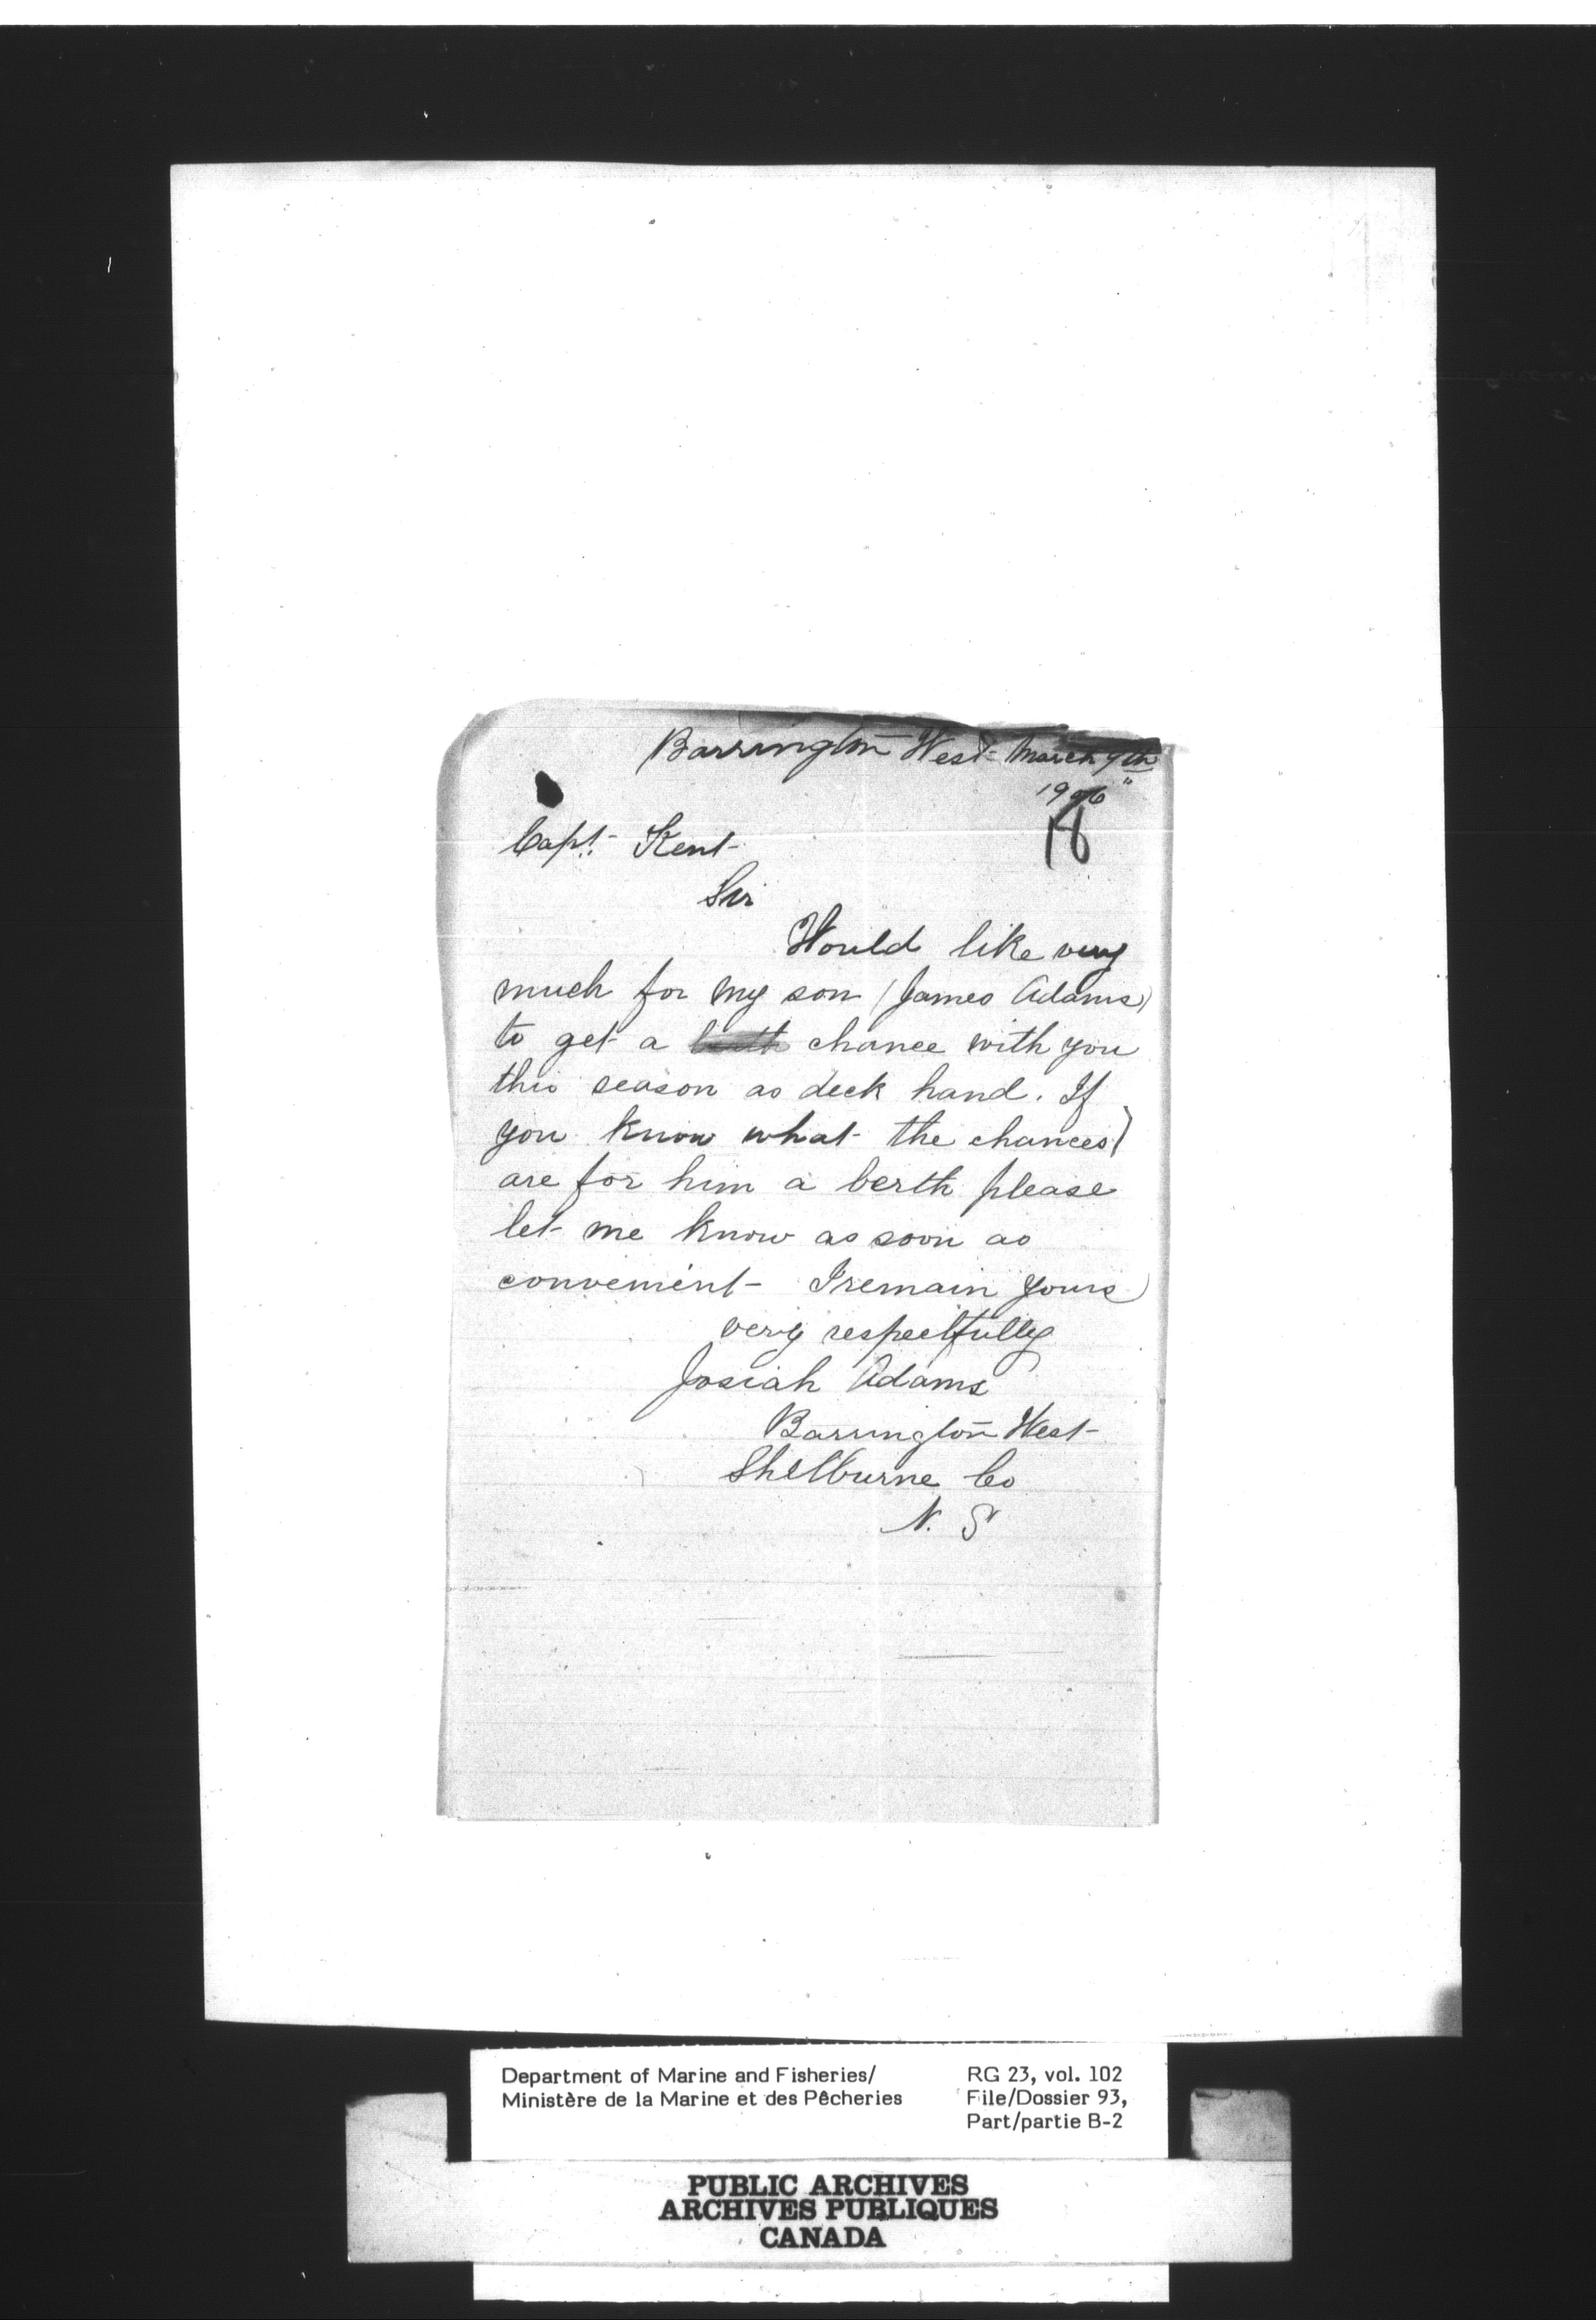 Barrington West March 9th
1906"
18
Capt. Kent
Sir
Would like very
much for my son (James Adams)
to get a chance with you
this season as deck hand. If
you know what the chances
are for him a berth please
let me know as soon as
convenient I remain yours
very respectfully
Josiah Adams
Barrington West
Shelburne Co
N. S
Department of Marine and Fisheries/
Ministère de la Marine et des Pêcheries
RG 23, vol. 102
File/Dossier 93,
Part/partie B-2
PUBLIC ARCHIVES
ARCHIVES PUBLIQUES
CANADA